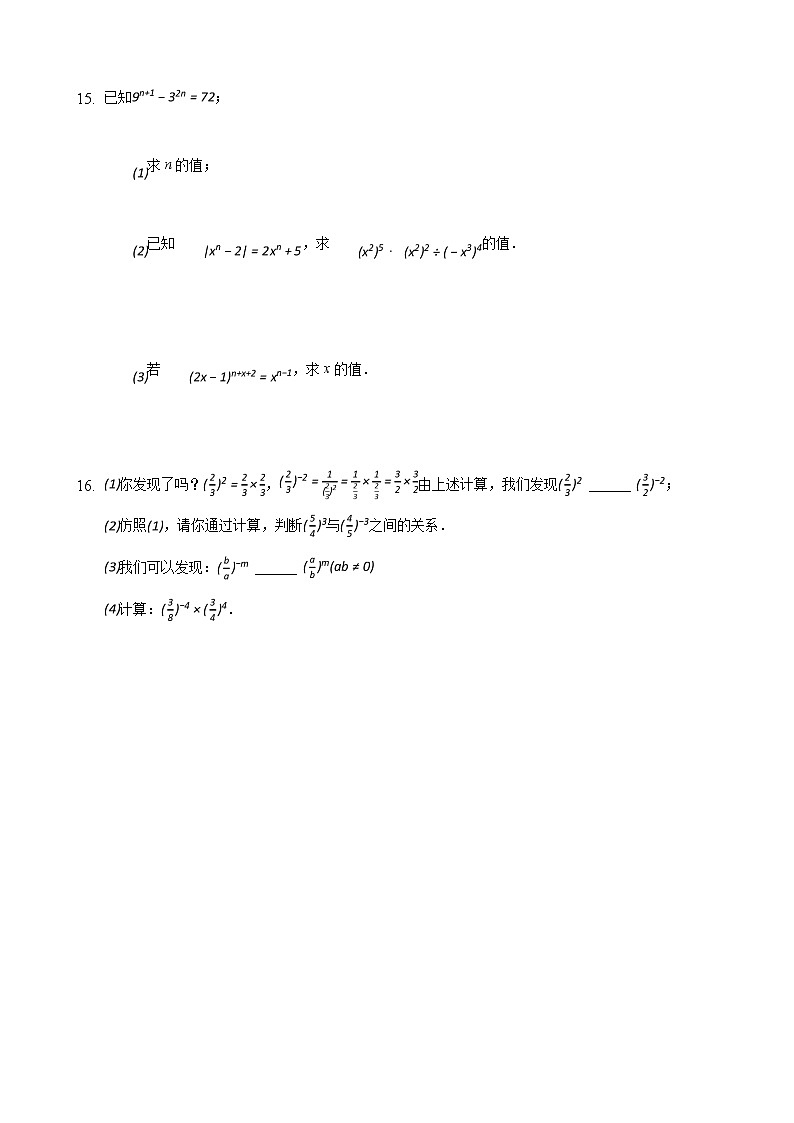 15. 已知9ⁿ⁺¹ − 3²ⁿ = 72;
(1)求 n 的值;
(2)已知 |xⁿ − 2| = 2xⁿ + 5,求 (x²)⁵ · (x²)² ÷ ( − x³)⁴的值.
(3)若 (2x − 1)ⁿ⁺ˣ⁺² = xⁿ⁻¹,求 x 的值.
16. (1)你发现了吗?(2/3)² = 2/3 × 2/3,(2/3)⁻² = 1/(2/3)² = 1/(2/3) × 1/(2/3) = 3/2 × 3/2由上述计算,我们发现(2/3)² ______ (3/2)⁻²;
(2)仿照(1),请你通过计算,判断(5/4)³与(4/5)⁻³之间的关系.
(3)我们可以发现:(b/a)⁻ᵐ ______ (a/b)ᵐ(ab ≠ 0)
(4)计算:(3/8)⁻⁴ × (3/4)⁴.